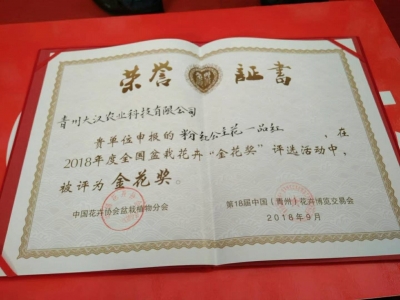 荣誉 证书
青州大汉农业科技有限公司
贵单位申报的 一品红 ，在
2018年度全国盆栽花卉“金花奖”评选活动中，
被评为金花奖。
中国花卉协会盆栽植物分会
第18届中国（青州）花卉博览交易会
2018年9月